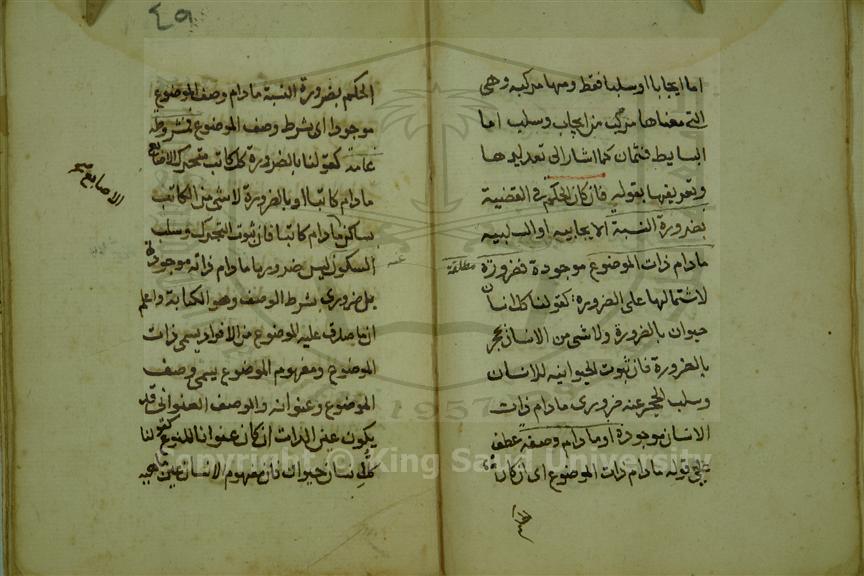 اما ايجابا او سلبا فقط ومنها مركبه وهى
التى معناها مركب من ايجاب وسلب اما
البسايط فثمان كما اشار الى تعديدها
وتعريفها بقوله فان كان الحكم فى القضية
بضرورة النسبة الايجابيه او السلبيه
مادام ذات الموضوع موجودة فضرورة مطلقة
لاشتمالها على الضرورة كقولنا كل انسان
حيوان بالضرورة ولا شى من الانسان بحجر
بالضرورة فان ثبوت الحيوانيه للانسان
وسلب الحجر عنه ضرورى مادام ذات
الانسان موجودة او مادام وصفه عطف
على قوله مادام ذات الموضوع اى ان كان
٤٩
الحكم بضرورة النسبة مادام وصف الموضوع
موجودا اى بشرط وصف الموضوع فمشروطه
عامة كقولنا بالضرورة كل كاتب متحرك الاصابع
مادام كاتبا او بالضرورة لا شى من الكاتب
ساكن مادام كاتبا فان ثبوت التحرك وسلب
السكون ليس ضروريا مادام ذاته موجودة
بل ضرورى بشرط الوصف وهو الكتابة واعلم
ان ما صدق عليه الموضوع من الافراد يسمى ذات
الموضوع ومفهوم الموضوع يسمى وصف
الموضوع وعنوانه والوصف العنوانى قد
يكون عين الذات ان كان عنوانا للنوع كقولنا
كل انسان حيوان فان مفهوم الانسان عين ماهيه
الاصابع صح
عنه
Copyright © King Saud University
1957